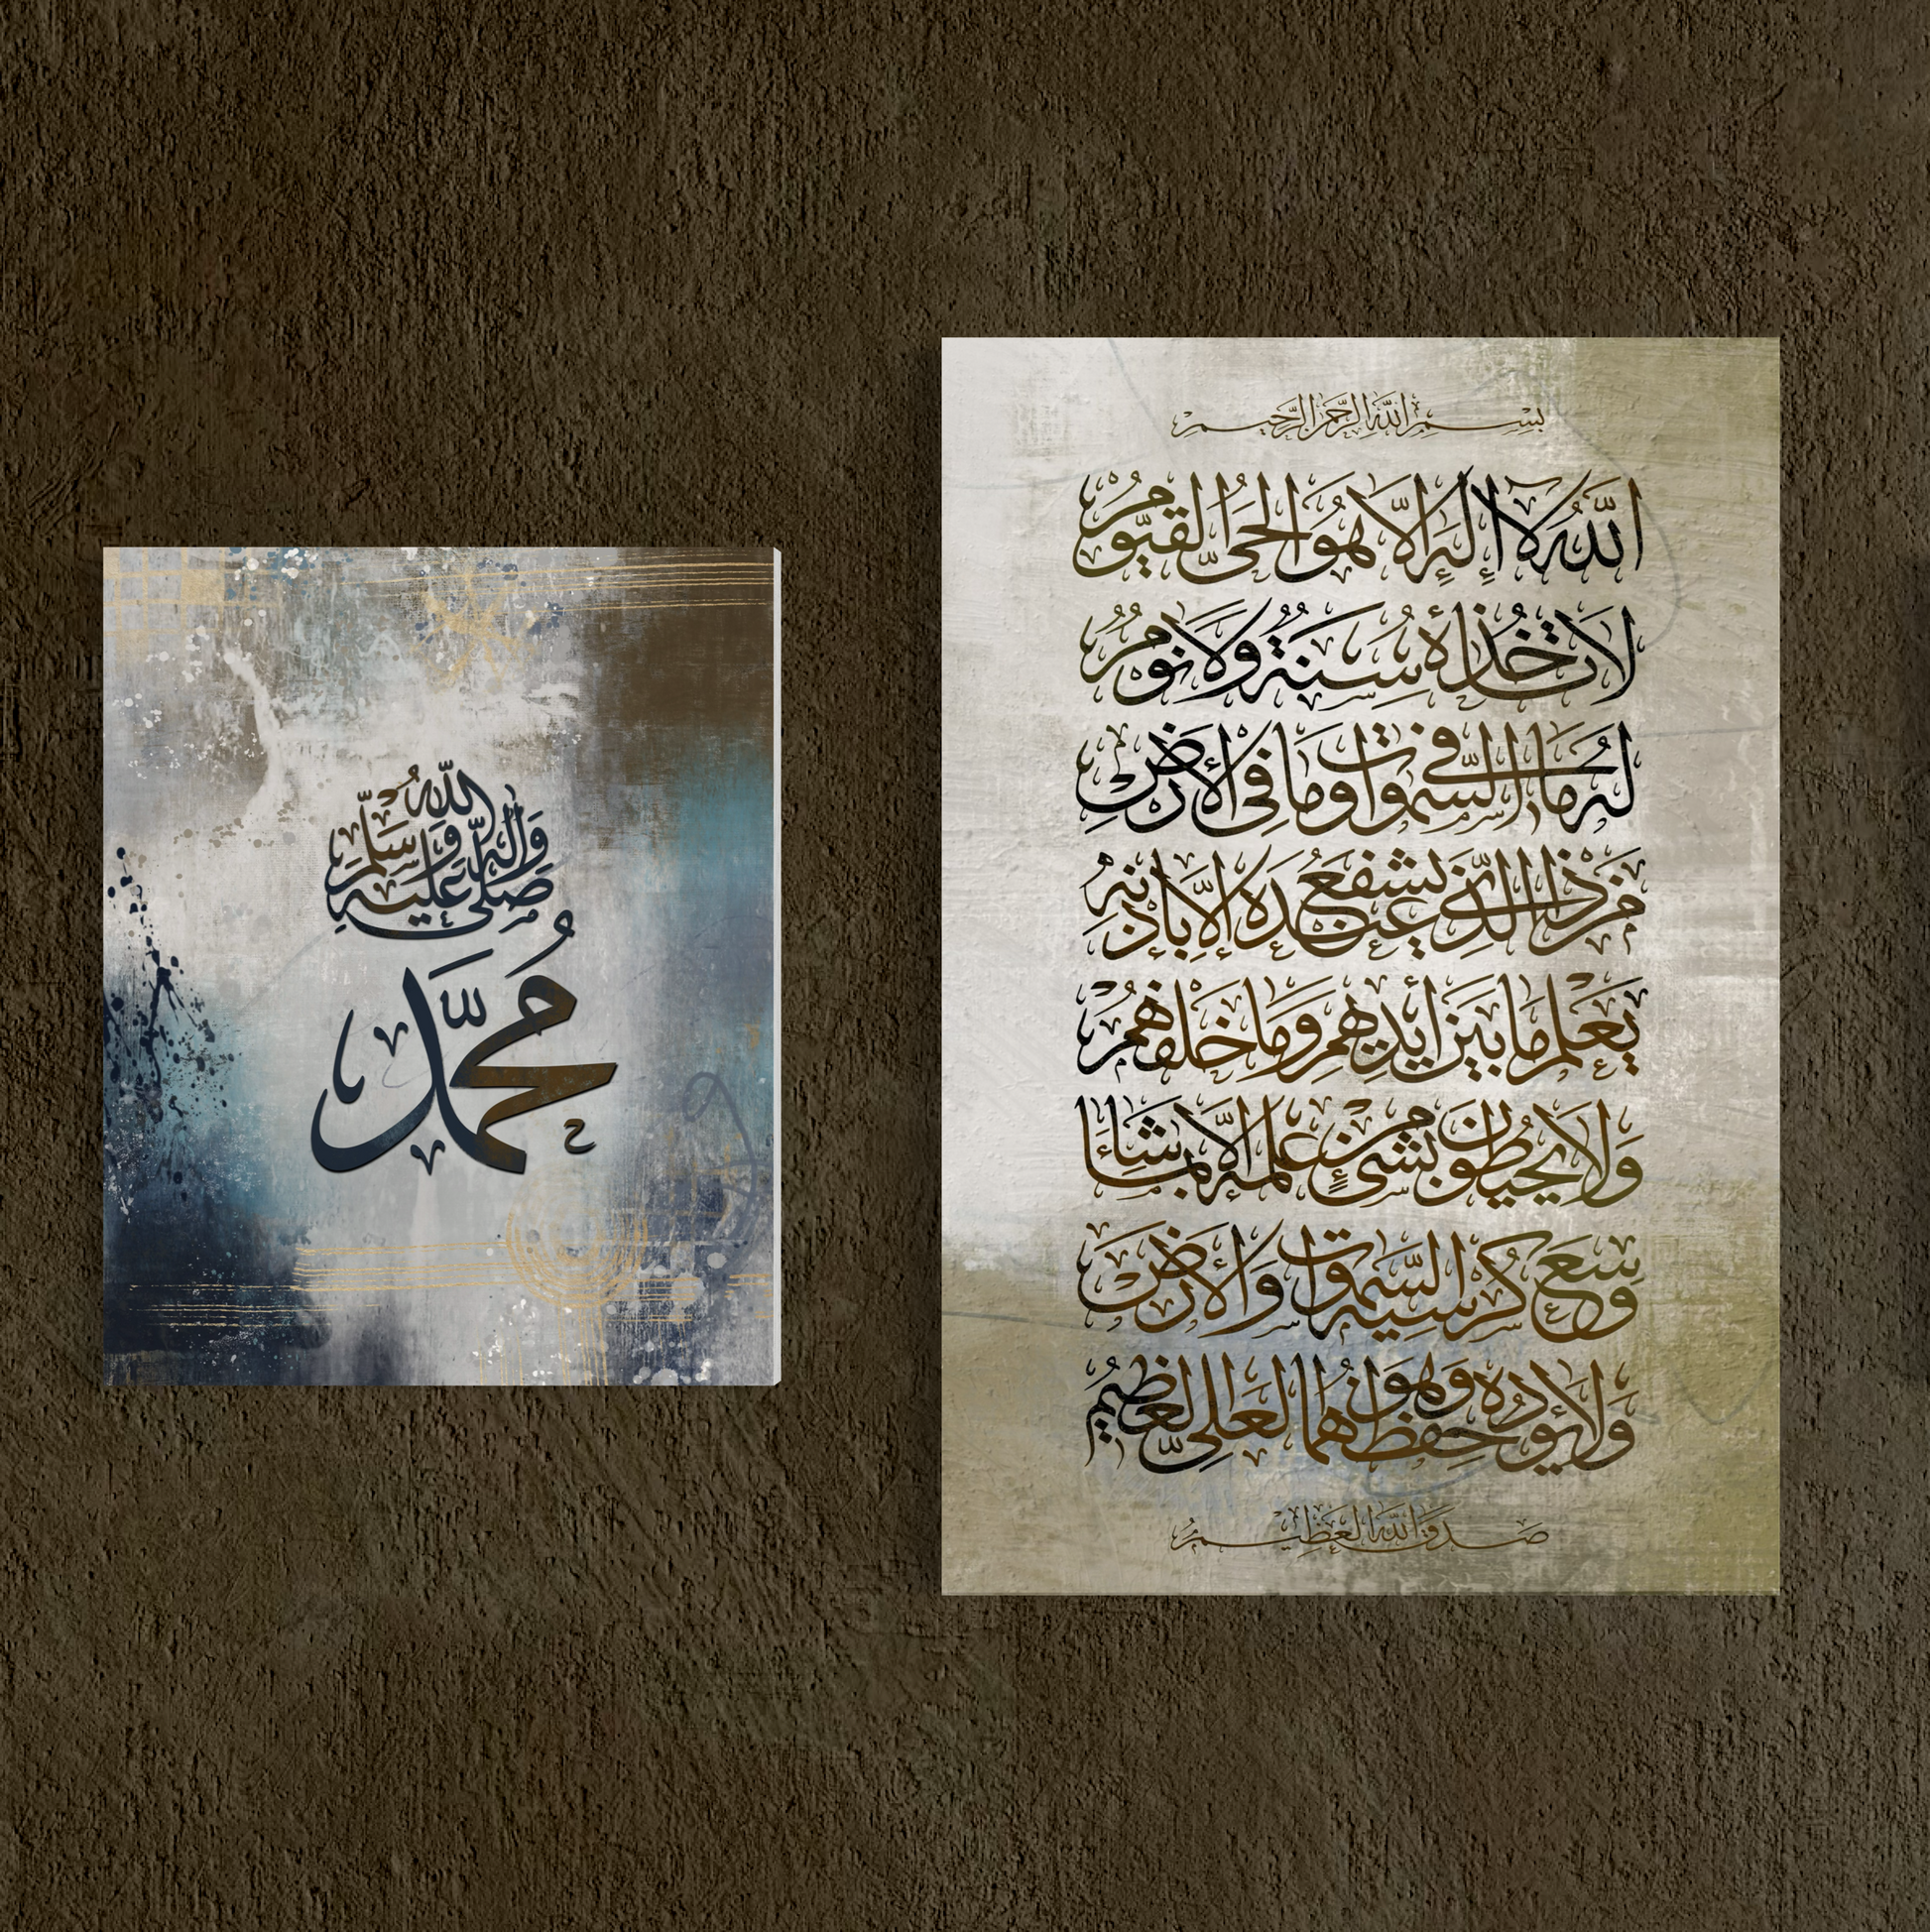 بِسْمِ اللهِ الرَّحْمٰنِ الرَّحِيمِ
اللهُ لَا إِلٰهَ إِلَّا هُوَ الْحَيُّ الْقَيُّومُ
لَا تَأْخُذُهُ سِنَةٌ وَلَا نَوْمٌ
لَهُ مَا فِي السَّمٰوَاتِ وَمَا فِي الْأَرْضِ
مَنْ ذَا الَّذِي يَشْفَعُ عِنْدَهُ إِلَّا بِإِذْنِهِ
يَعْلَمُ مَا بَيْنَ أَيْدِيهِمْ وَمَا خَلْفَهُمْ
وَلَا يُحِيطُونَ بِشَيْءٍ مِنْ عِلْمِهِ إِلَّا بِمَا شَاءَ
وَسِعَ كُرْسِيُّهُ السَّمٰوَاتِ وَالْأَرْضَ
وَلَا يَئُودُهُ حِفْظُهُمَا وَهُوَ الْعَلِيُّ الْعَظِيمُ
صَدَقَ اللهُ الْعَظِيمُ
صَلَّى اللهُ عَلَيْهِ وَآلِهِ وَسَلَّمَ
مُحَمَّد